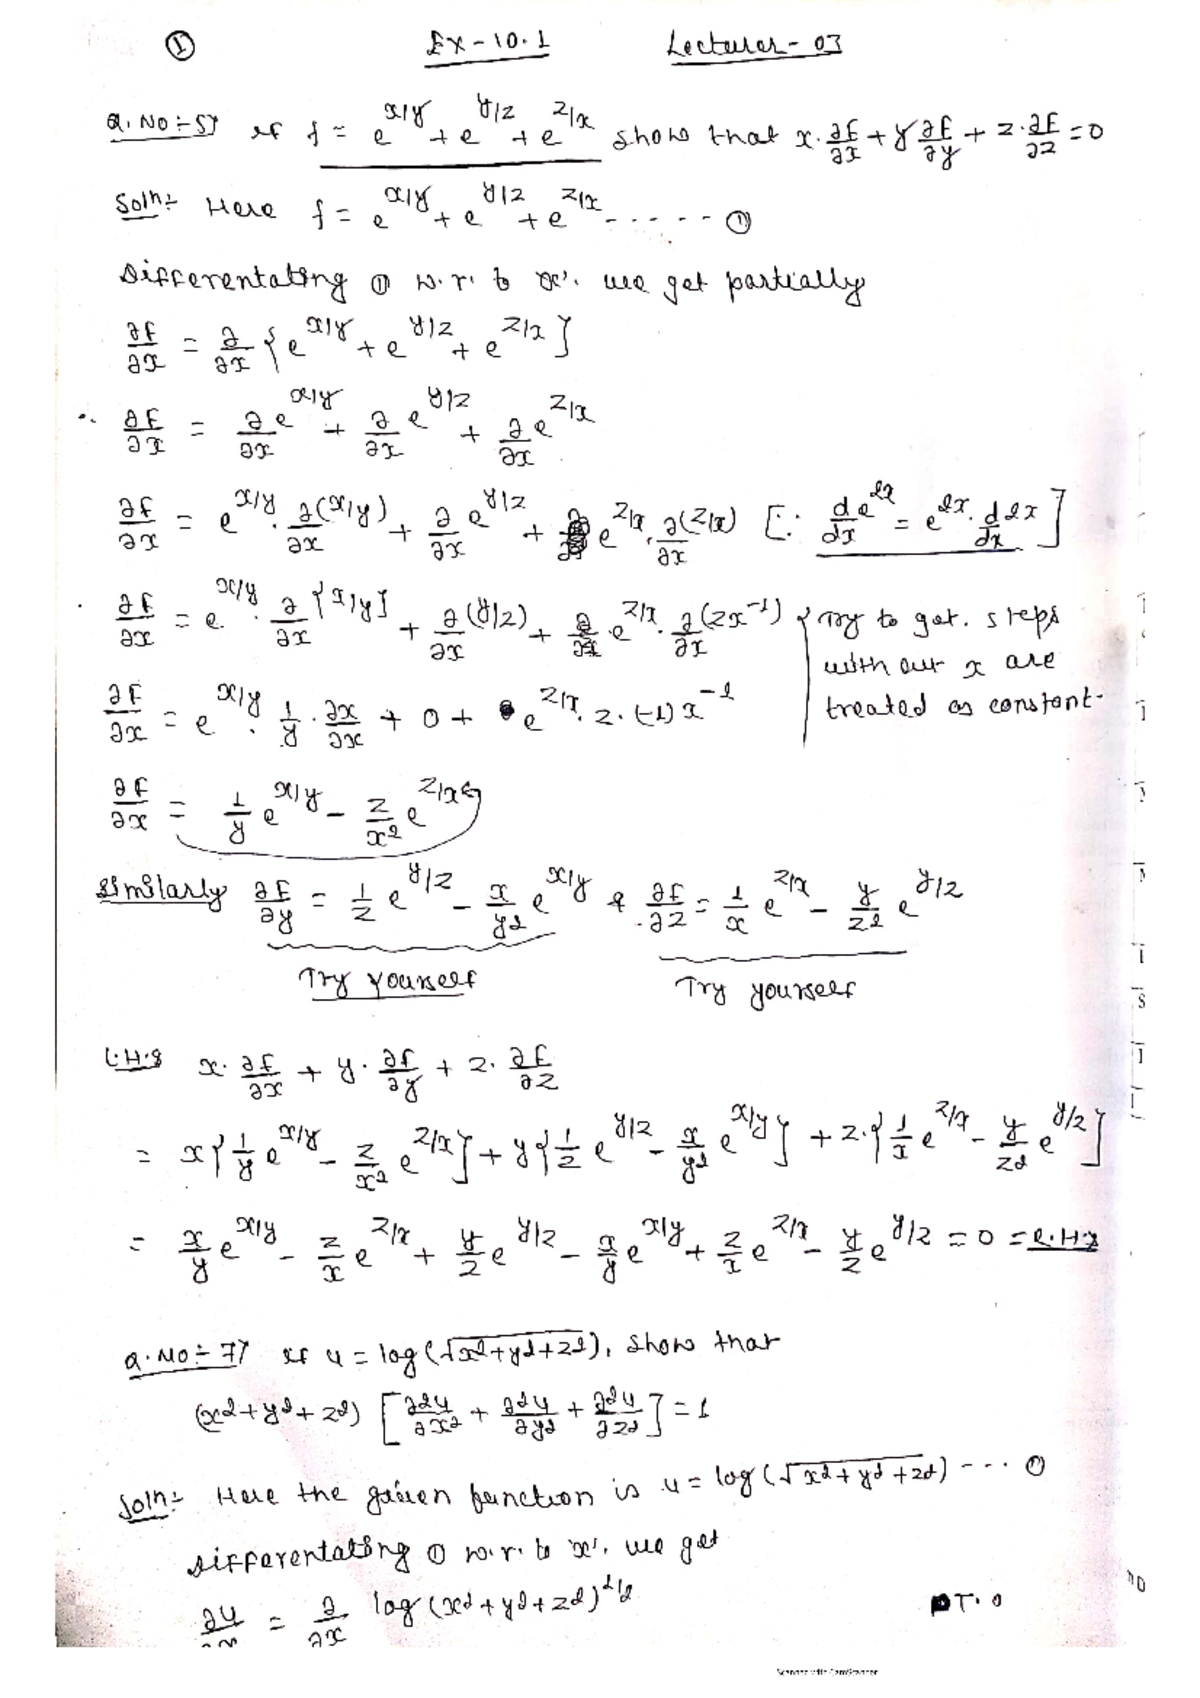 ① Ex-10.1 Lecturer-03
Q.No:-5) If f = e^{x/y} + e^{y/z} + e^{z/x} show that x.∂f/∂x + y ∂f/∂y + z.∂f/∂z = 0
Soln:- Here f = e^{x/y} + e^{y/z} + e^{z/x} ...... ①
Differentating ① w.r. to 'x'. we get partially
∂f/∂x = ∂/∂x {e^{x/y} + e^{y/z} + e^{z/x}}
∴ ∂f/∂x = ∂e^{x/y}/∂x + ∂/∂x e^{y/z} + ∂e^{z/x}/∂x
∂f/∂x = e^{x/y}. ∂(x/y)/∂x + ∂/∂x e^{y/z} + e^{z/x}. ∂(z/x)/∂x [∵ d e^{2x}/dx = e^{2x}. d 2x/dx]
∂f/∂x = e^{x/y}. ∂/∂x {x/y} + ∂(y/z)/∂x + e^{z/x}. ∂(zx^{-1})/∂x { Try to get. steps
with out x are
∂f/∂x = e^{x/y}. 1/y . ∂x/∂x + 0 + e^{z/x}. z.(-1)x^{-2} treated as constant.
∂f/∂x = 1/y e^{x/y} - z/x² e^{z/x}
Similarly ∂f/∂y = 1/z e^{y/z} - x/y² e^{x/y} & ∂f/∂z = 1/x e^{z/x} - y/z² e^{y/z}
Try yourself Try yourself
L.H.S x.∂f/∂x + y.∂f/∂y + z.∂f/∂z
= x{1/y e^{x/y} - z/x² e^{z/x}} + y{1/z e^{y/z} - x/y² e^{x/y}} + z.{1/x e^{z/x} - y/z² e^{y/z}}
= x/y e^{x/y} - z/x e^{z/x} + y/z e^{y/z} - x/y e^{x/y} + z/x e^{z/x} - y/z e^{y/z} = 0 = R.H.S
Q.No:- 7) If u = log(√x²+y²+z²), show that
(x²+y²+z²) [∂²u/∂x² + ∂²u/∂y² + ∂²u/∂z²] = 1
Soln:- Here the given function is u = log(√x²+y²+z²) --- ①
Differentating ① w.r. to 'x'. we get
∂u/∂x = ∂/∂x log(x²+y²+z²)^{1/2} P T.O
Scanned with CamScanner